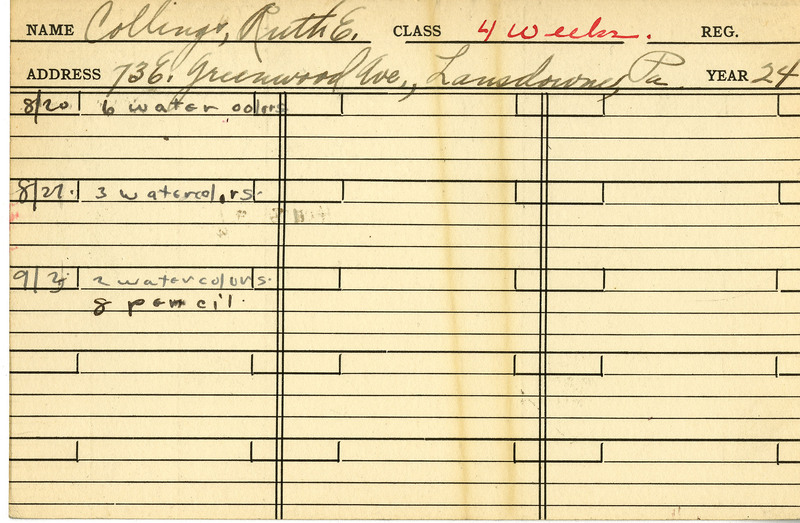 NAME Collings, Ruth E. CLASS 4 Weeks. REG.
ADDRESS 73 E. Greenwood Ave., Lansdowne, Pa. YEAR 24
8/20 6 water colors
8/27. 3 watercolors.
9/3 2 watercolors.
8 pencil.